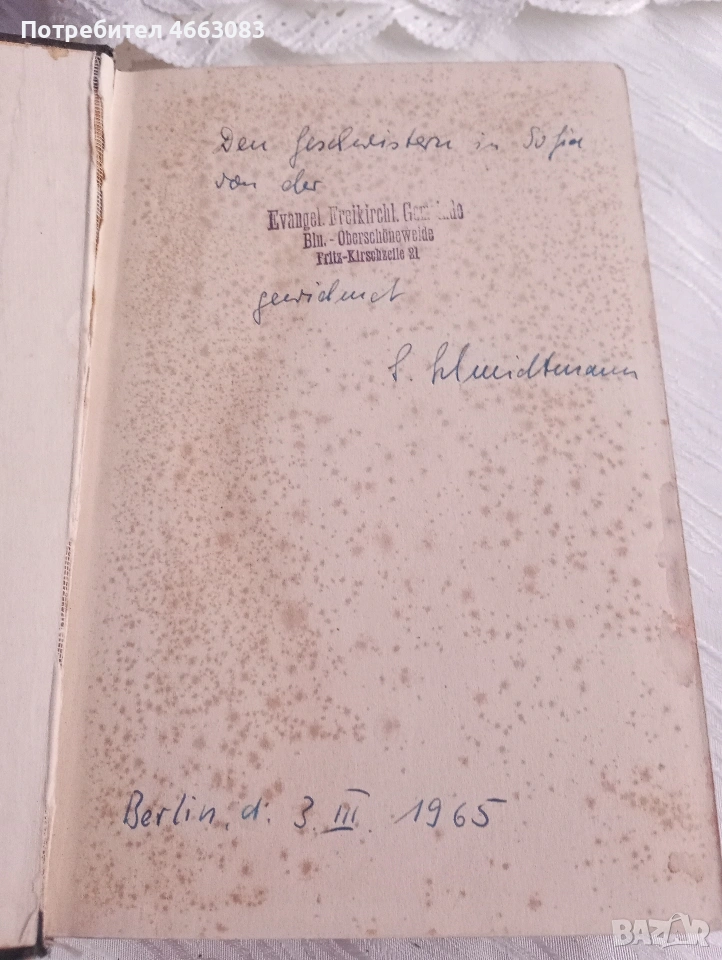 Потребител 4663083
Den Geschwistern in Sofia
von der
Evangel. Freikirchl. Gemeinde
Bln. - Oberschöneweide
Fritz-Kirschzeile 21
gewidmet
Schmidtmann
Berlin, d. 3. III. 1965
BAZAR